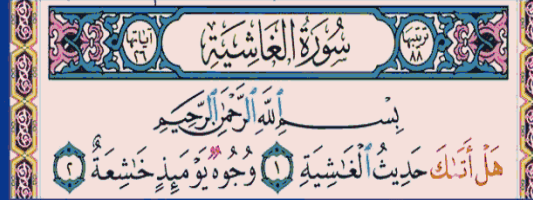 ترتيبها ٨٨ سُورَةُ الْغَاشِيَةِ آياتها ٢٦
بِسْمِ ٱللَّهِ ٱلرَّحْمَٰنِ ٱلرَّحِيمِ
هَلْ أَتَىٰكَ حَدِيثُ ٱلْغَٰشِيَةِ ١ وُجُوهٌ يَوْمَئِذٍ خَٰشِعَةٌ ٢